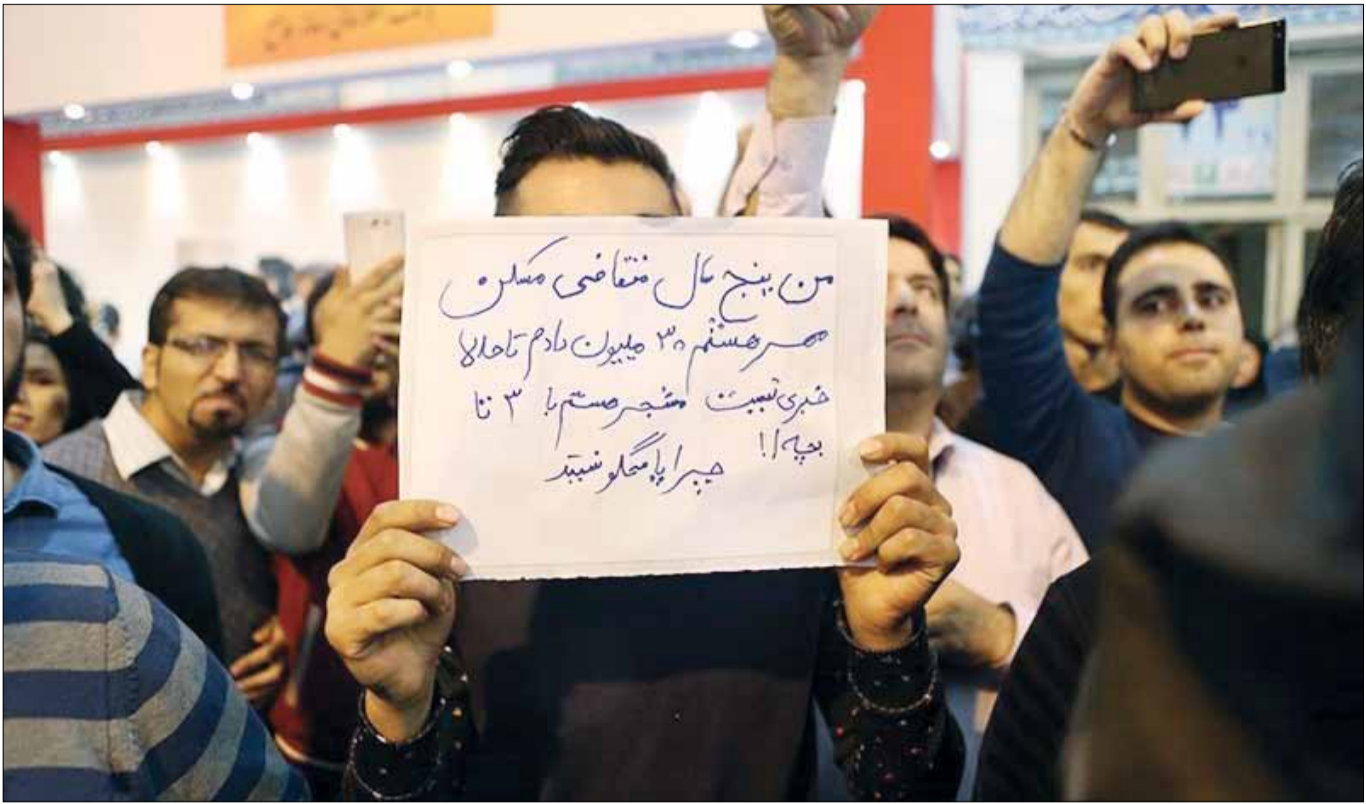 من پنج سال متقاضی مسکن
مهر هستم ۳۰ میلیون دادم تا حالا
خبری نیست مستجر هستم با ۳ تا
بچه/!
چرا پاسخگو نیستید